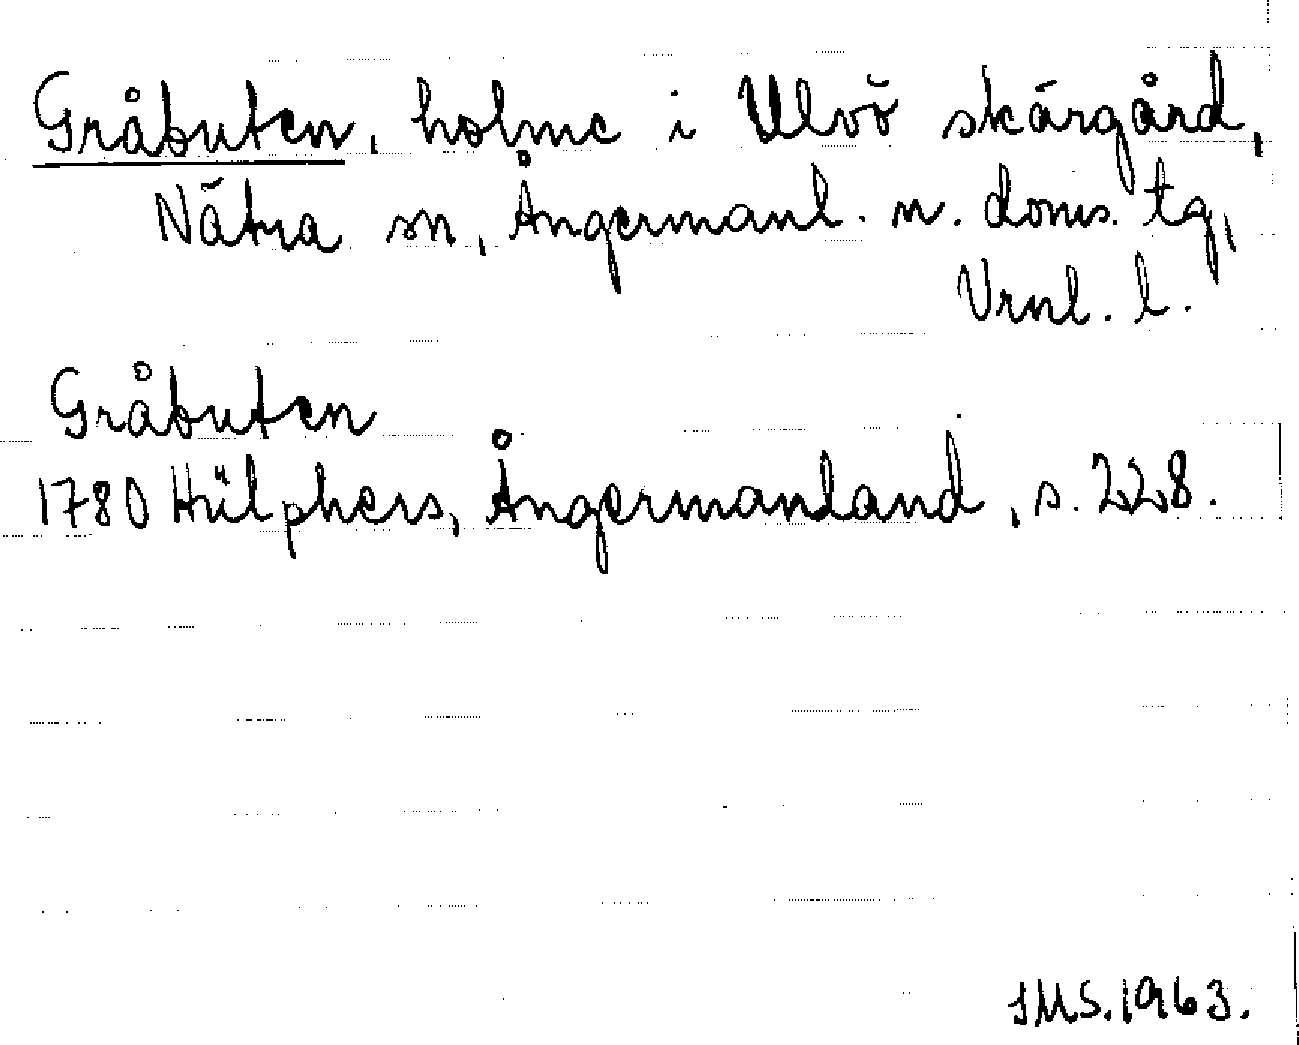 Gråbuten, holme i Ulvö skärgård,
Nätra sn, Ångermanl. n. doms. tg,
Vrnl. l.
Gråbuten
1780 Hülphers, Ångermanland, s. 228.
IMS. 1963.